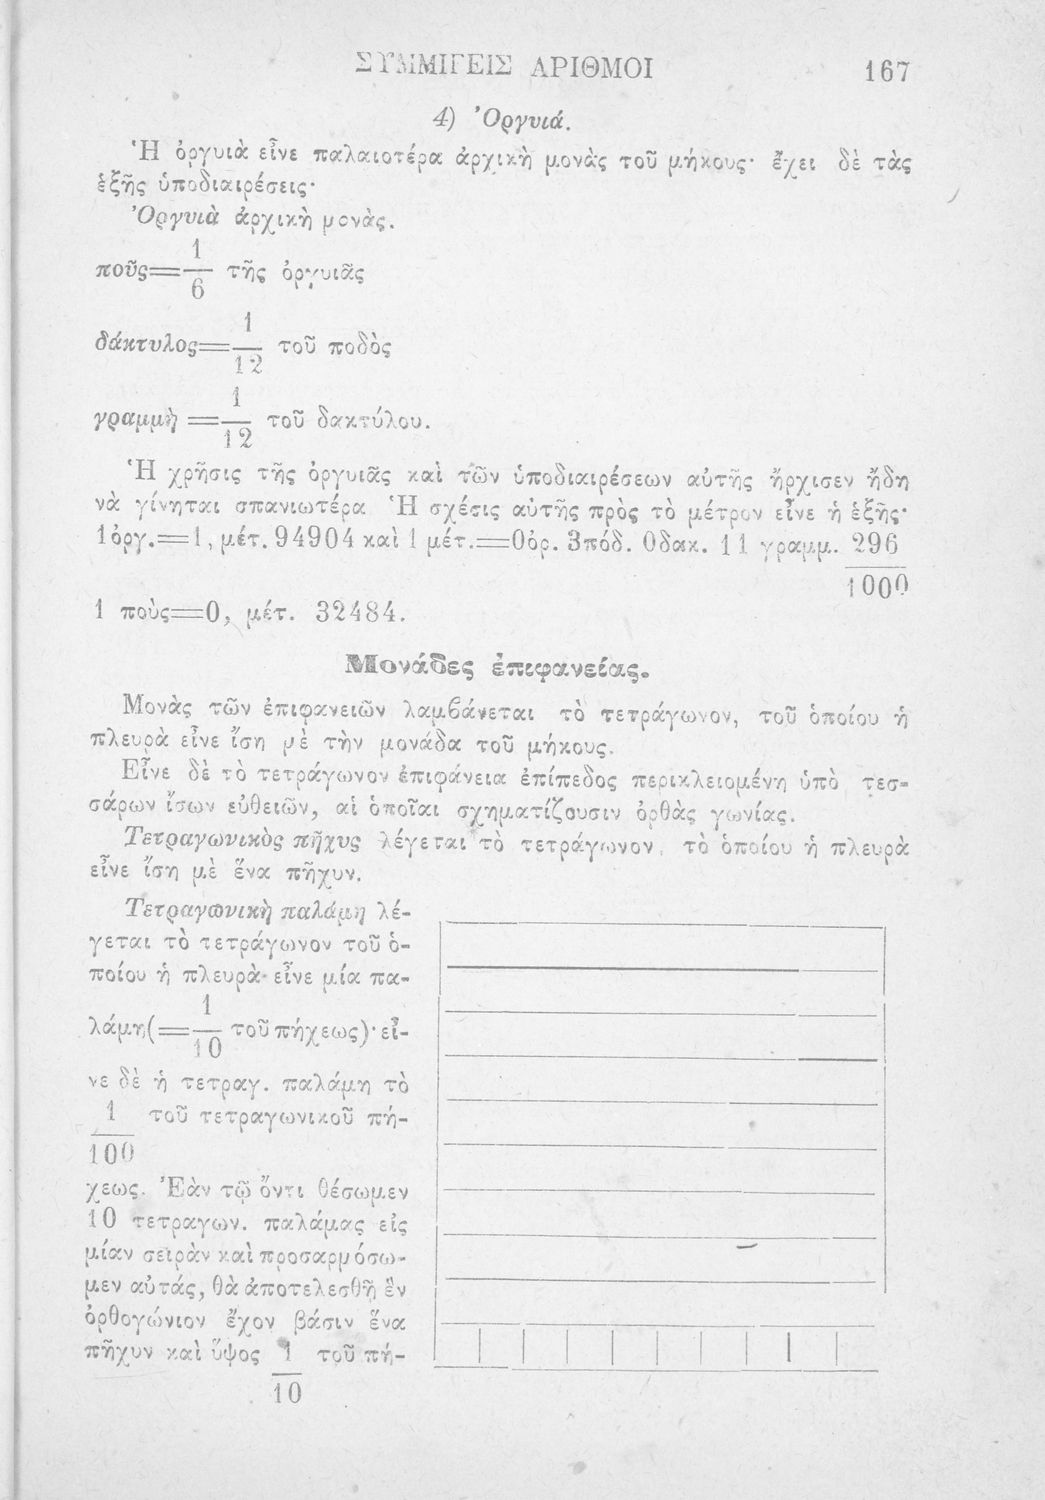 ΣΥΜΜΙΓΕΙΣ ΑΡΙΘΜΟΙ 167
4) Ὀργυιά.
Ἡ ὀργυιὰ εἶνε παλαιοτέρα ἀρχικὴ μονὰς τοῦ μήκους· ἔχει δὲ τὰς
ἑξῆς ὑποδιαιρέσεις·
Ὀργυιὰ ἀρχικὴ μονὰς.
ποῦς=1/6 τῆς ὀργυιᾶς
δάκτυλος=1/12 τοῦ ποδὸς
γραμμὴ =1/12 τοῦ δακτύλου.
Ἡ χρῆσις τῆς ὀργυιᾶς καὶ τῶν ὑποδιαιρέσεων αὐτῆς ἤρχισεν ἤδη
νὰ γίνηται σπανιωτέρα Ἡ σχέσις αὐτῆς πρὸς τὸ μέτρον εἶνε ἡ ἑξῆς·
1ὀργ.=1, μέτ. 94904 καὶ 1 μέτ.=0ὀρ. 3πόδ. 0δακ. 11 γραμμ. 296/1000
1 ποὺς=0, μέτ. 32484.
Μονάδες ἐπιφανείας.
Μονὰς τῶν ἐπιφανειῶν λαμβάνεται τὸ τετράγωνον, τοῦ ὁποίου ἡ
πλευρὰ εἶνε ἴση μὲ τὴν μονάδα τοῦ μήκους.
Εἶνε δὲ τὸ τετράγωνον ἐπιφάνεια ἐπίπεδος περικλειομένη ὑπὸ τεσ-
σάρων ἴσων εὐθειῶν, αἱ ὁποῖαι σχηματίζουσιν ὀρθὰς γωνίας.
Τετραγωνικὸς πῆχυς λέγεται τὸ τετράγωνον, τὸ ὁποίου ἡ πλευρὰ
εἶνε ἴση μὲ ἕνα πῆχυν.
Τετραγωνικὴ παλάμη λέ-
γεται τὸ τετράγωνον τοῦ ὁ-
ποίου ἡ πλευρὰ εἶνε μία πα-
λάμη(=1/10 τοῦ πήχεως)· εἶ-
νε δὲ ἡ τετραγ. παλάμη τὸ
1/100 τοῦ τετραγωνικοῦ πή-
χεως. Ἐὰν τῷ ὄντι θέσωμεν
10 τετραγων. παλάμας εἰς
μίαν σειρὰν καὶ προσαρμόσω-
μεν αὐτάς, θὰ ἀποτελεσθῇ ἓν
ὀρθογώνιον ἔχον βάσιν ἕνα
πῆχυν καὶ ὕψος 1/10 τοῦ πή-